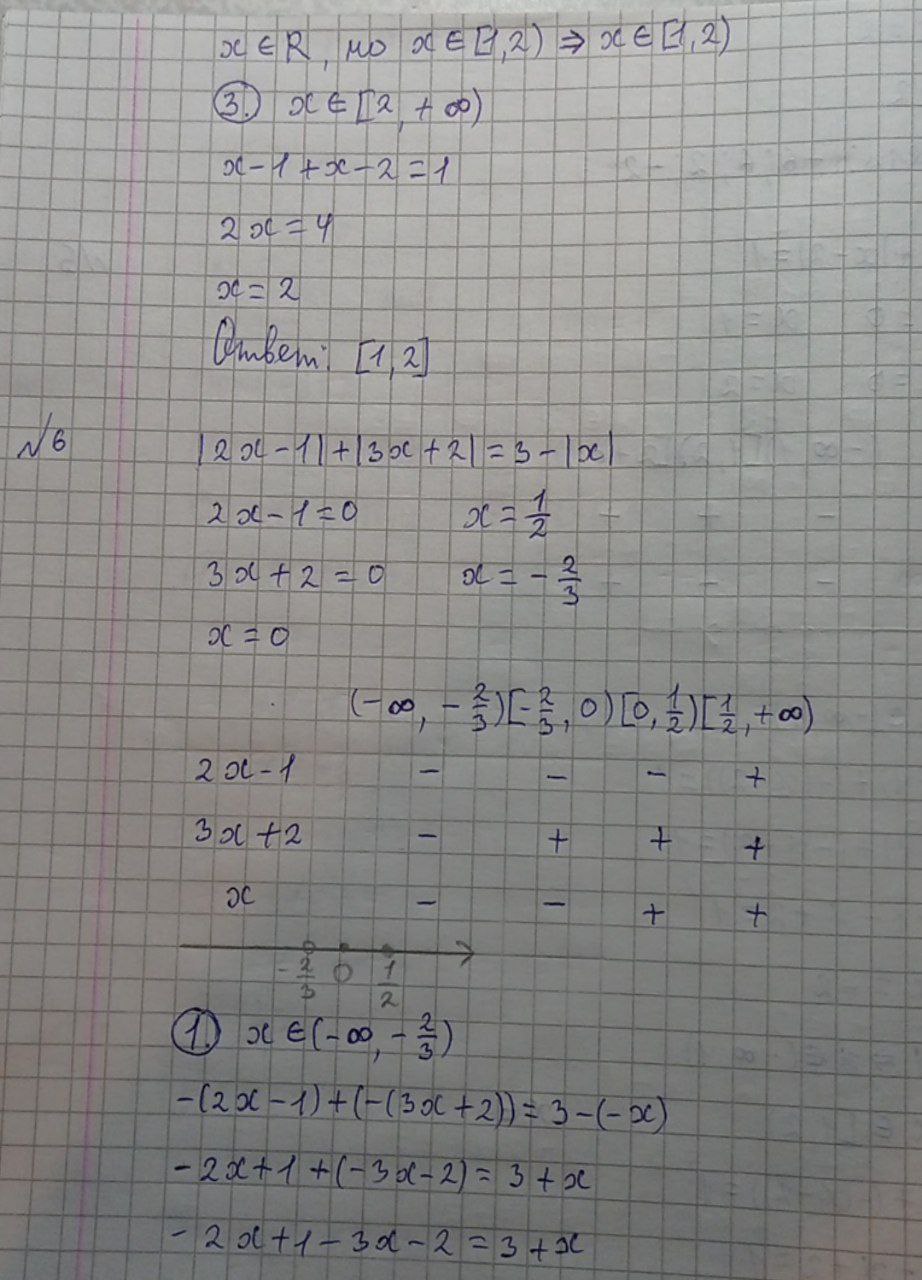 x ∈ R, но x ∈ [1,2) ⇒ x ∈ [1,2)
3. x ∈ [2, +∞)
x-1+x-2=1
2x=4
x=2
Ответ: [1,2]
№6 |2x-1|+|3x+2|=3-|x|
2x-1=0 x=1/2
3x+2=0 x=-2/3
x=0
(-∞, -2/3)[-2/3, 0)[0, 1/2)[1/2, +∞)
2x-1 - - - +
3x+2 - + + +
x - - + +
-2/3 0 1/2
1. x ∈ (-∞, -2/3)
-(2x-1)+(-(3x+2))=3-(-x)
-2x+1+(-3x-2)=3+x
-2x+1-3x-2=3+x